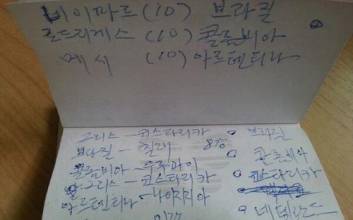 네이마르(10) 브라질
로드리게스(10) 콜롬비아
메시 (10) 아르헨티나
그리스 - 코스타리카
브라질 - 칠레 8강
콜롬비아 - 우루과이
그리스 - 코스타리카
아르헨티나 -
브라질
콜롬비아
코스타리카
네덜란드